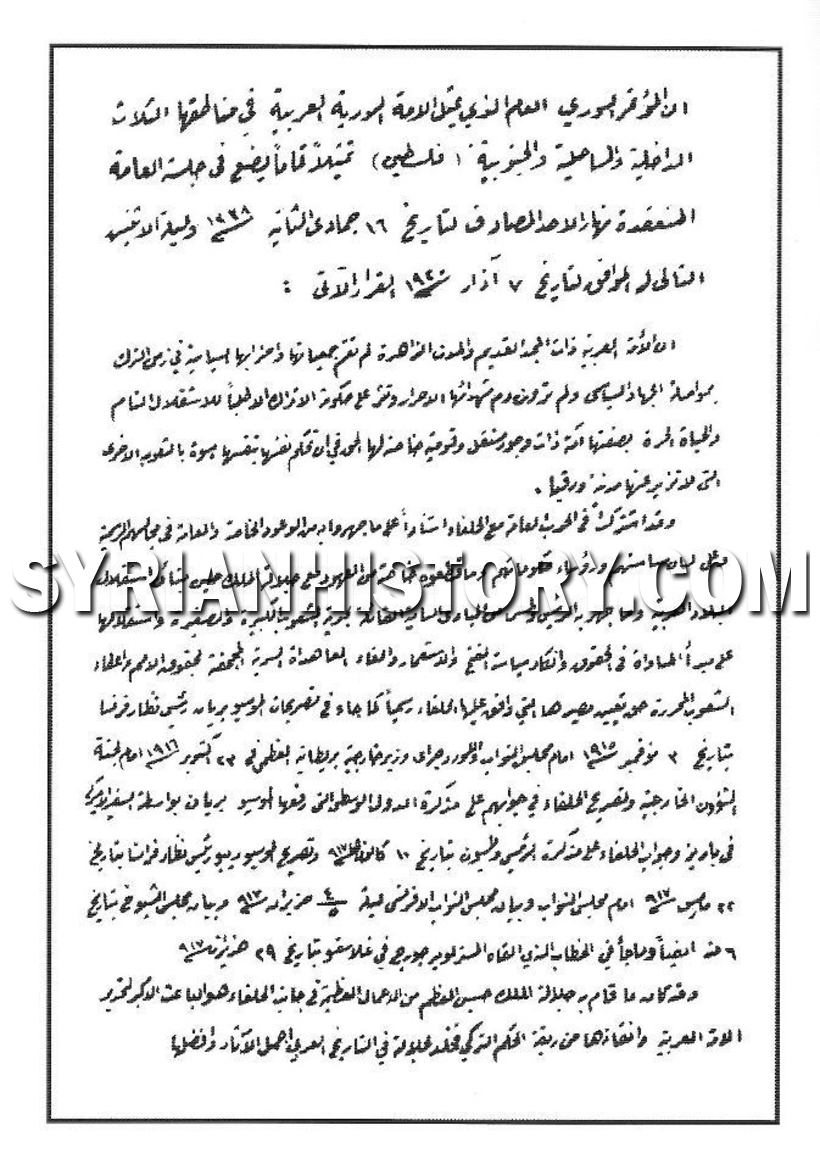 ان المؤتمر السوري العام الذي يمثل الامة السورية العربية في مناطقها الثلاث
الداخلية والساحلية والجنوبية (فلسطين) تمثيلاً تاماً يضع في جلسته العامة
المنعقدة نهار الاحد المصادف لتاريخ ١٦ جمادى الثانية ١٣٣٨ وليلة الاثنين
التالي له الموافق لتاريخ ٧ آذار ١٩٢٠ القرار الآتي :
ان الأمة العربية ذات المجد القديم والمدنية الزاهرة لم تقم جمعياتها واحزابها السياسية في زمن الترك
بمواصلة الجهاد السياسي ولم ترق دم شهدائها الاحرار وتثر على حكومة الاتراك الا طلباً للاستقلال التام
والحياة الحرة بصفتها امة ذات وجود مستقل وقومية خاصة لها الحق في ان تحكم نفسها بنفسها اسوة بالشعوب الاخرى
التي لا تزيد عنها مدنية ورقيا .
وقد اشتركت في الحرب العامة مع الحلفاء استناداً على ما جهروا به من الوعود الخاصة والعامة في مجالسهم الرسمية
وعلى لسان ساستهم ورؤساء حكوماتهم وما قطعوه خاصة من العهود مع جلالة الملك حسين بشأن استقلال
البلاد العربية وما جهر به الرئيس ولسن من المبادئ السامية القائلة بحرية الشعوب الكبيرة والصغيرة واستقلالها
على مبدأ المساواة في الحقوق وانكار سياسة الفتح والاستعمار والغاء المعاهدات السرية المجحفة بحقوق الامم واعطاء
الشعوب المحررة حق تعيين مصيرها التي وافق عليها الحلفاء رسمياً كما جاء في تصريحات المسيو بريان رئيس نظار فرنسا
بتاريخ ٣ نوفمبر ١٩١٥ امام مجلس النواب واللورد جراي وزير خارجية بريطانية العظمى في ٢٣ اكتوبر ١٩١٦ امام لجنة
الشؤون الخارجية وتصريح الحلفاء في جوابهم على مذكرة الدول الوسطى التي رفعها المسيو بريان بواسطة السفير الاميركي
في باريز وجواب الحلفاء على مذكرة الرئيس ولسون بتاريخ ١٠ كانون ٩١٧ وتصريح المسيو ريبو رئيس نظار فرانسا بتاريخ
٢٢ مايس ٩١٧ امام مجلس النواب وبيان مجلس النواب الافرنسي ليلة ٤ ٥ حزيران ٩١٧ وبيان مجلس الشيوخ في تاريخ
٦ منه ايضاً وما جاء في الخطاب الذي القاه المستر لويد جورج في غلاسغو بتاريخ ٢٩ حزيران ٩١٧
وقد كان ما قام به جلالة الملك حسين المعظم من الاعمال العظيمة في جانب الحلفاء هو الباعث الاكبر لتحرير
الامة العربية وانقاذها من ربقة الحكم التركي فخلد لجلالته في التاريخ العربي اجمل الآثار وافضلها
SYRIANHISTORY.COM